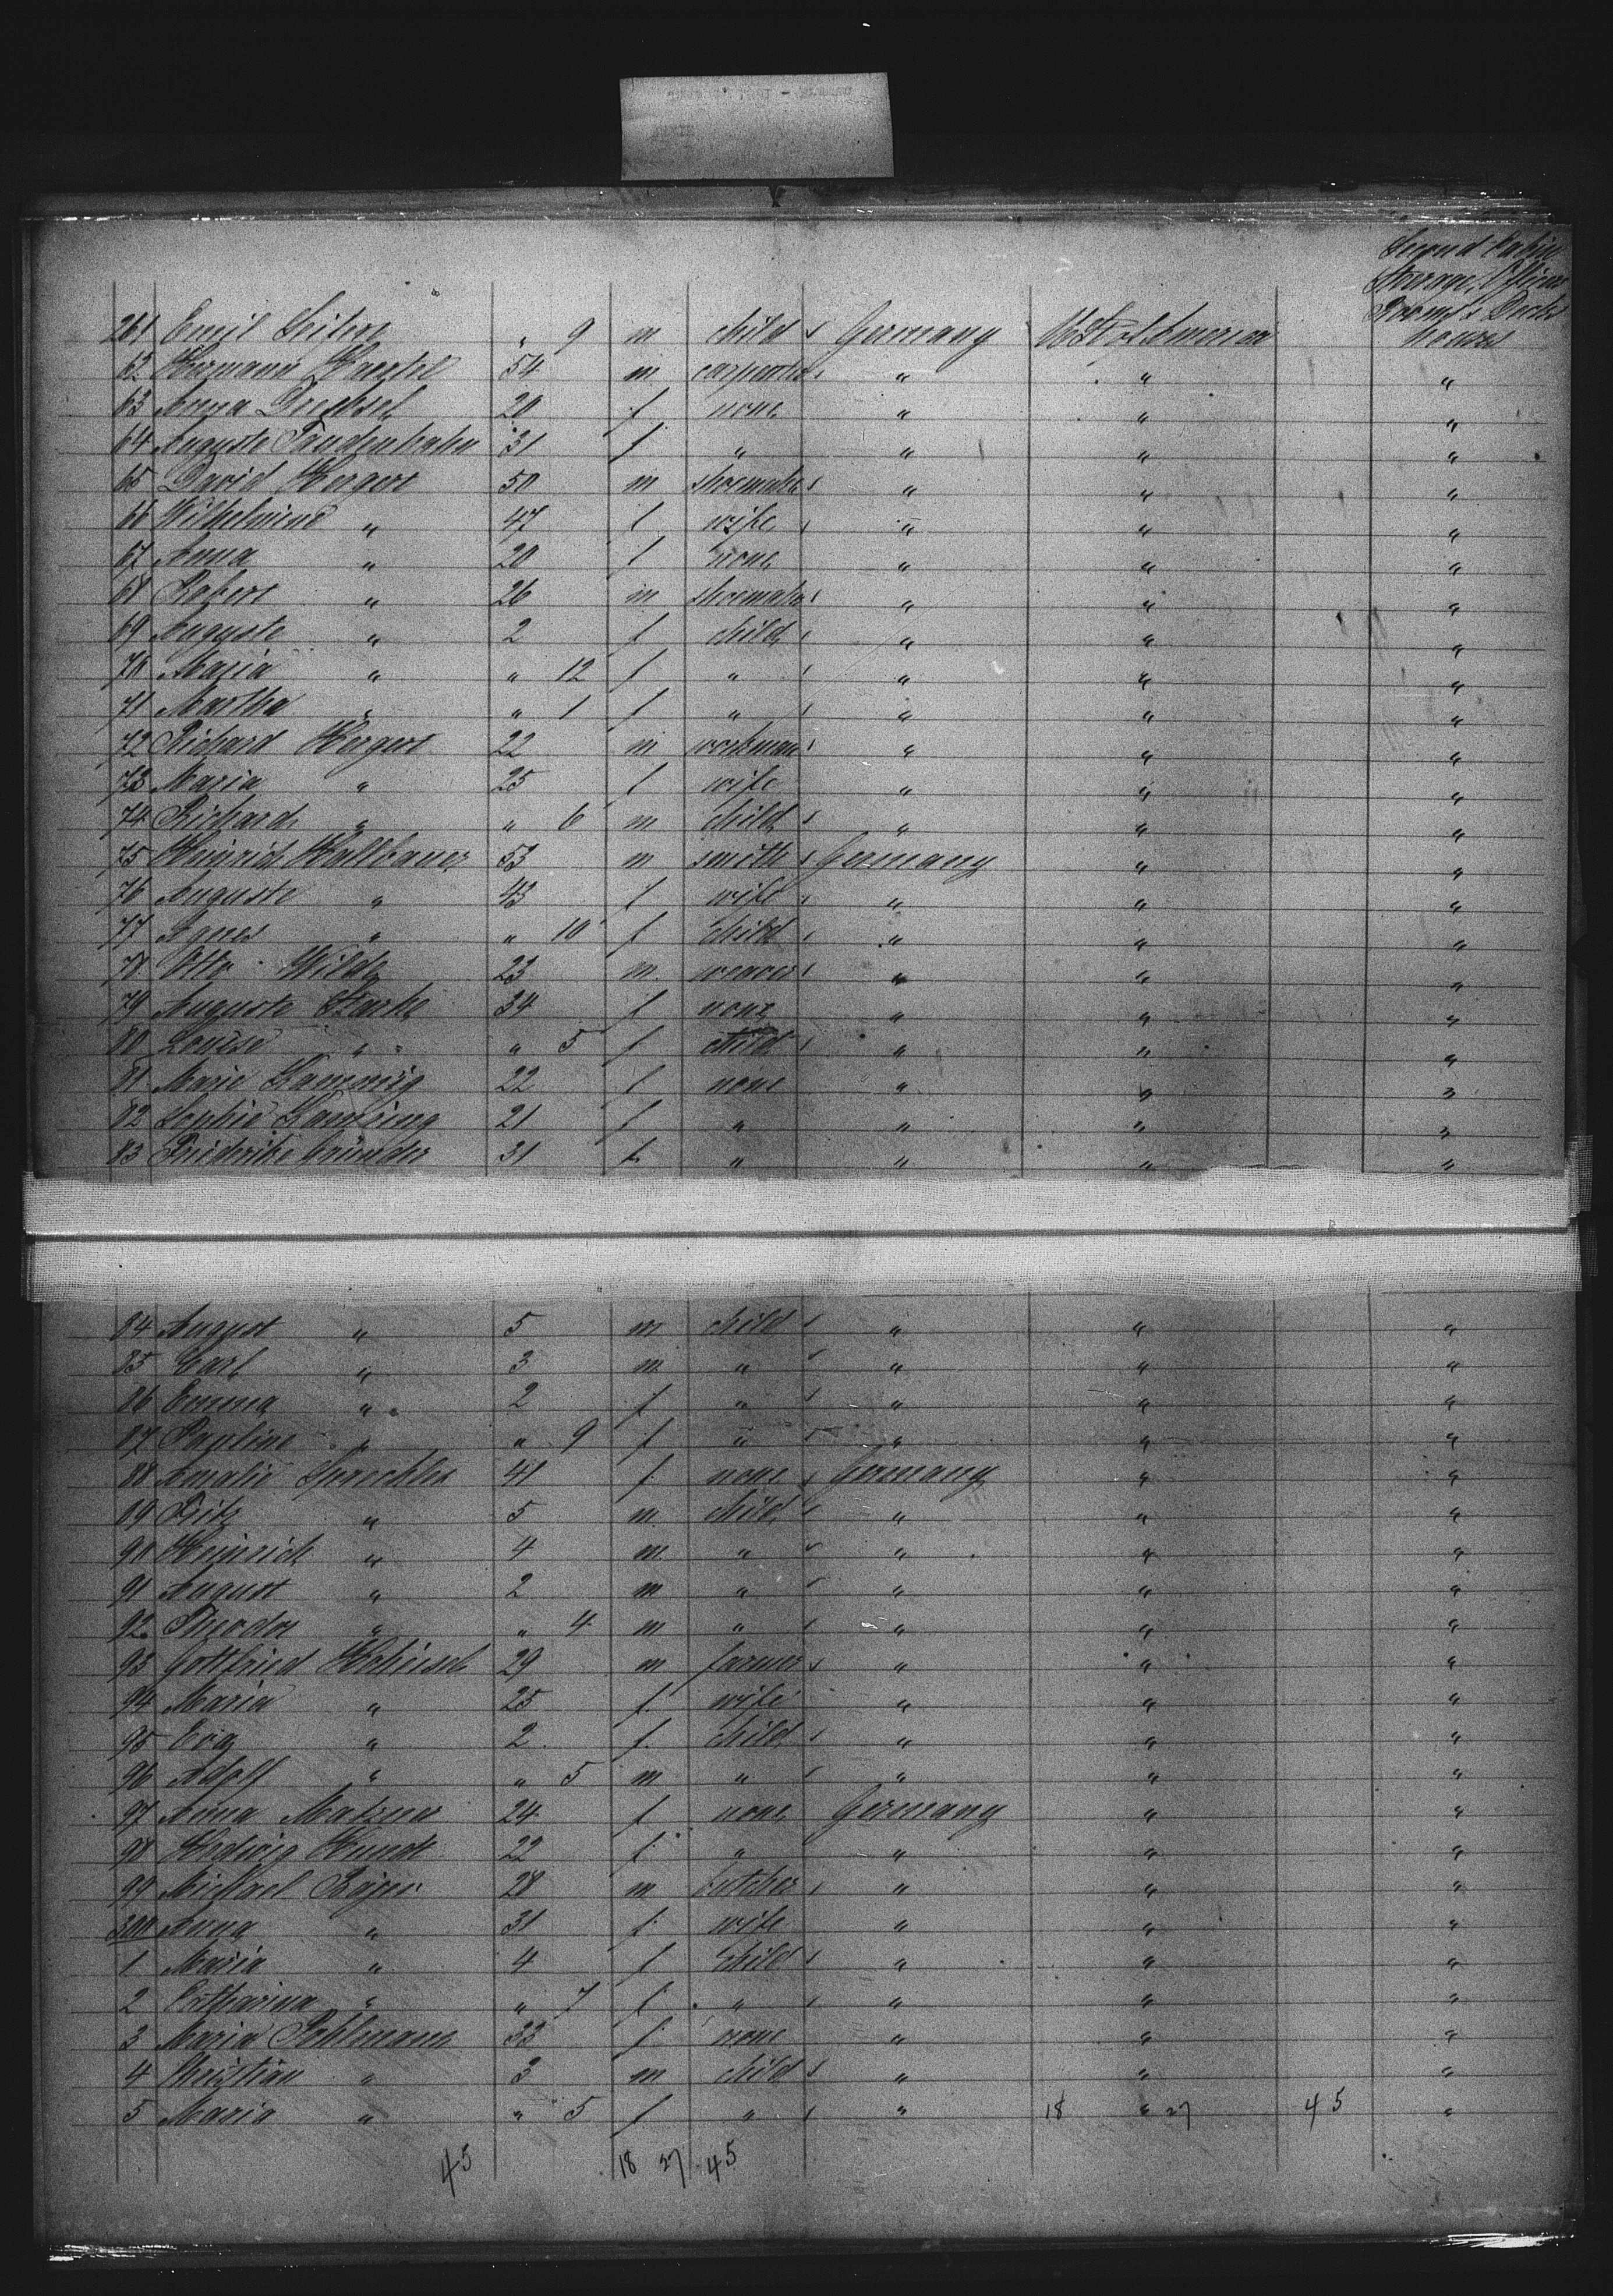 Second Cabin
Steerage, Officers
Rooms & Deck
houses
261 Emil Seiler " 9 m child Germany U. St. of America
62 Hermann Haertel 54 m carpenter " " "
63 Anna Drechsel 20 f none " " "
64 Auguste 31 f " " " "
65 David Hergert 50 m shoemaker " " "
66 Wilhelmine " 47 f wife " " "
67 Anna " 20 f none " " "
68 Robert " 26 m shoemaker " " "
69 Auguste " 2 f child " " "
70 Maria " " 12 f " " " "
71 Martha " " 1 f " " " "
72 Richard Hergert 22 m workman " " "
73 Maria " 25 f wife " " "
74 Richard " " 6 m child " " "
75 Heinrich Kallbauer 53 m smith Germany " "
76 Auguste " 43 f wife " " "
77 Agnes " " 10 f child " " "
78 Otto Wilde 23 m weaver " " "
79 Auguste Starke 34 f none " " "
80 Louise " " 5 f child " " "
81 Marie 22 f none " " "
82 Sophie 21 f " " " "
83 Friederike Gründer 31 f " " " "
84 August " 5 m child " " "
85 Carl " 3 m " " " "
86 Emma " 2 f " " " "
87 Pauline " " 9 f " " " "
88 Amalie Sprechler 41 f none Germany " "
89 Fritz " 5 m child " " "
90 Heinrich " 4 m " " " "
91 August " 2 m " " " "
92 Theodor " " 4 m " " " "
93 Gottfried 29 m farmer " " "
94 Maria " 25 f wife " " "
95 Eva " 2 f child " " "
96 Adolf " " 5 m " " " "
97 Anna 24 f none Germany " "
98 Hedwig Hundt 22 f " " " "
99 Michael 28 m butcher " " "
300 Anna " 31 f wife " " "
1 Maria " 4 f child " " "
2 Catharina " " 7 f " " " "
3 Maria Pohlmann 33 f none " " "
4 Christian " 3 m child " " "
5 Maria " " 5 f " " 18 " 27 45 "
45 18 27 45